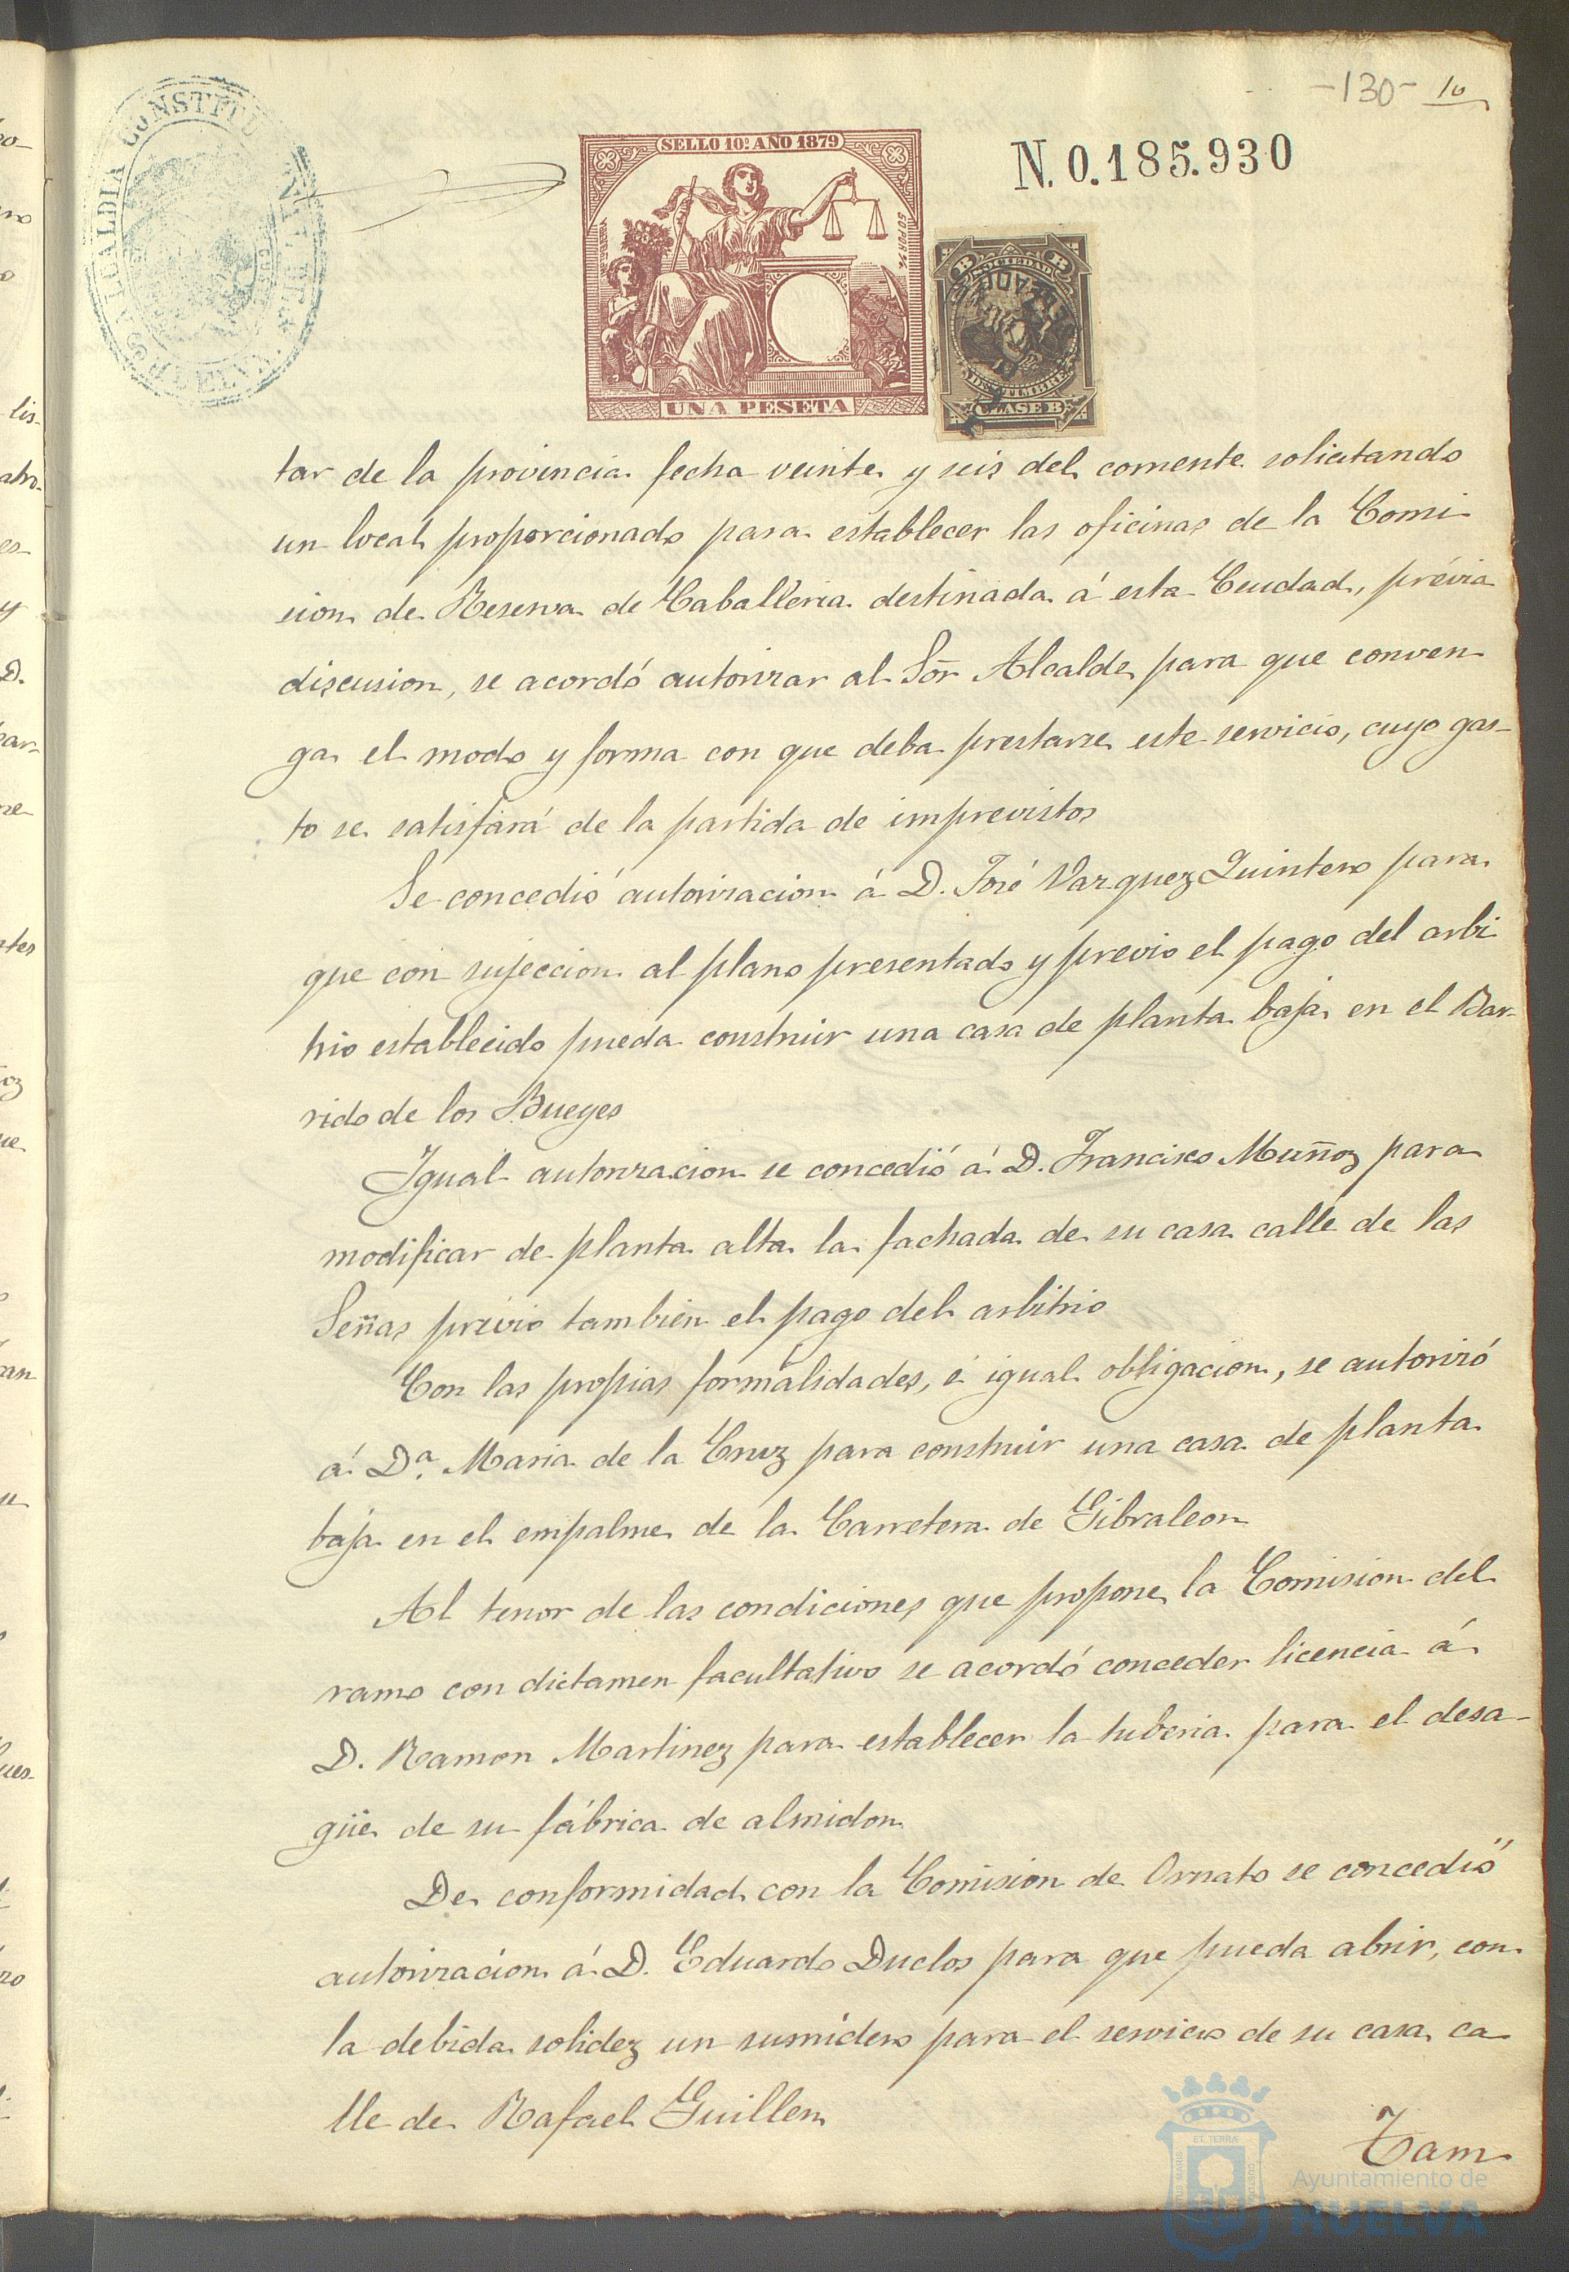 -130- 10
ALCALDIA CONSTITU
HUELVA
SELLO 10º AÑO 1879
UNA PESETA
N. 0.185.930
B SOCIEDAD B
DEL TIMBRE
CLASE B
tar de la provincia fecha veinte y seis del corriente solicitando
un local proporcionado para establecer las oficinas de la Comi
sion de Reserva de Caballeria destinada á esta Ciudad, prévia
discusion, se acordó autorizar al Sōr Alcalde para que conven
ga el modo y forma con que deba prestarse este servicio, cuyo gas-
to se satisfará de la partida de imprevistos
Se concedió autorizacion á D. José Vazquez Quintero para
que con sujeccion al plano presentado y previo el pago del arbi
trio establecido pueda construir una casa de planta baja en el Bar-
rido de los Bueyes
Igual autorizacion se concedió á D. Francisco Muñoz para
modificar de planta alta la fachada de su casa calle de las
Señas prévio tambien el pago del arbitrio
Con las propias formalidades, é igual obligacion, se autorizó
á Dª. Maria de la Cruz para construir una casa de planta
baja en el empalme de la Carretera de Gibraleon
Al tenor de las condiciones que propone la Comision del
ramo con dictamen facultativo se acordó conceder licencia á
D. Ramon Martinez para establecer la tuberia para el desa-
güe de su fábrica de almidon
De conformidad con la Comision de Ornato se concedió
autorizacion á D. Eduardo Duclos para que pueda abrir, con
la debida solidez un sumidero para el servicio de su casa ca
lle de Rafael Guillen
Tam
Ayuntamiento de
HUELVA